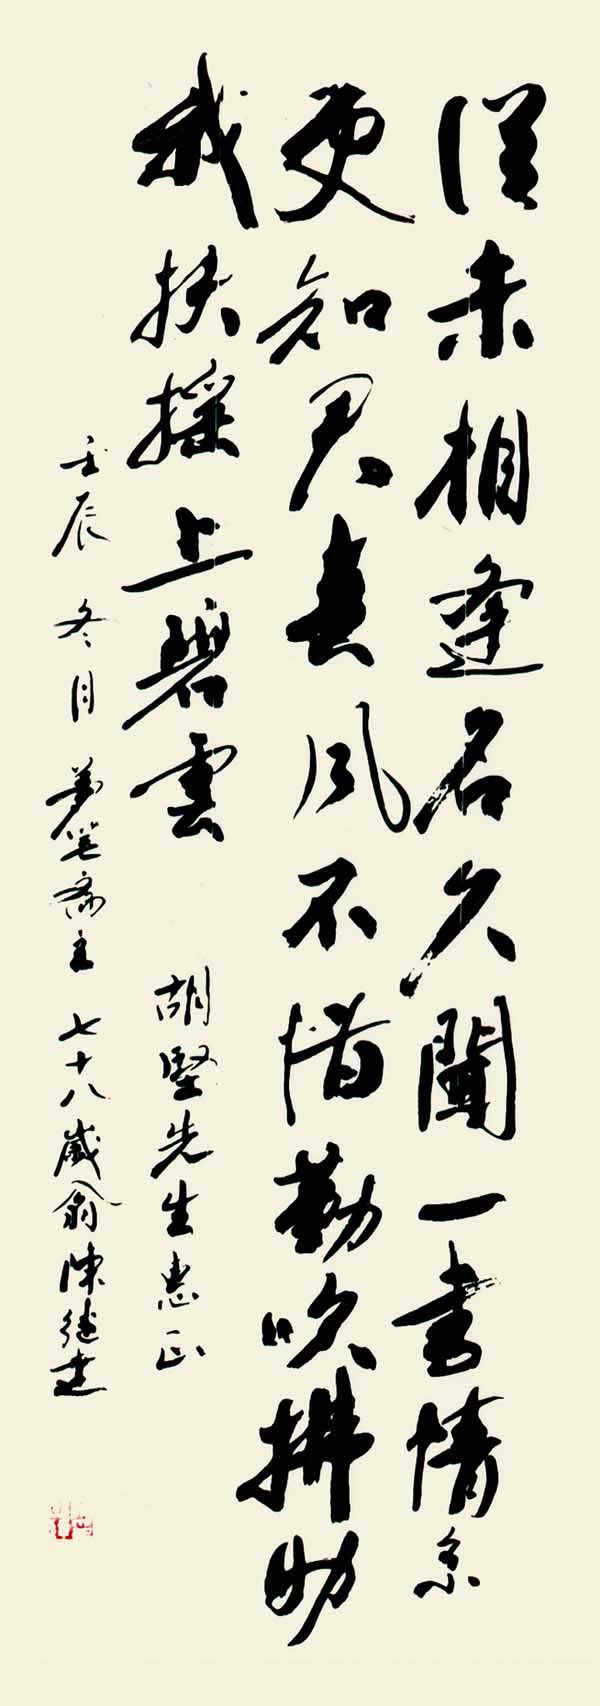 從未相逢名久聞一書情系
更知君春風不惜勤吹拂助
我扶搖上碧雲
胡堅先生惠正
壬辰冬月夢笔斋主七十八歲翁陳建